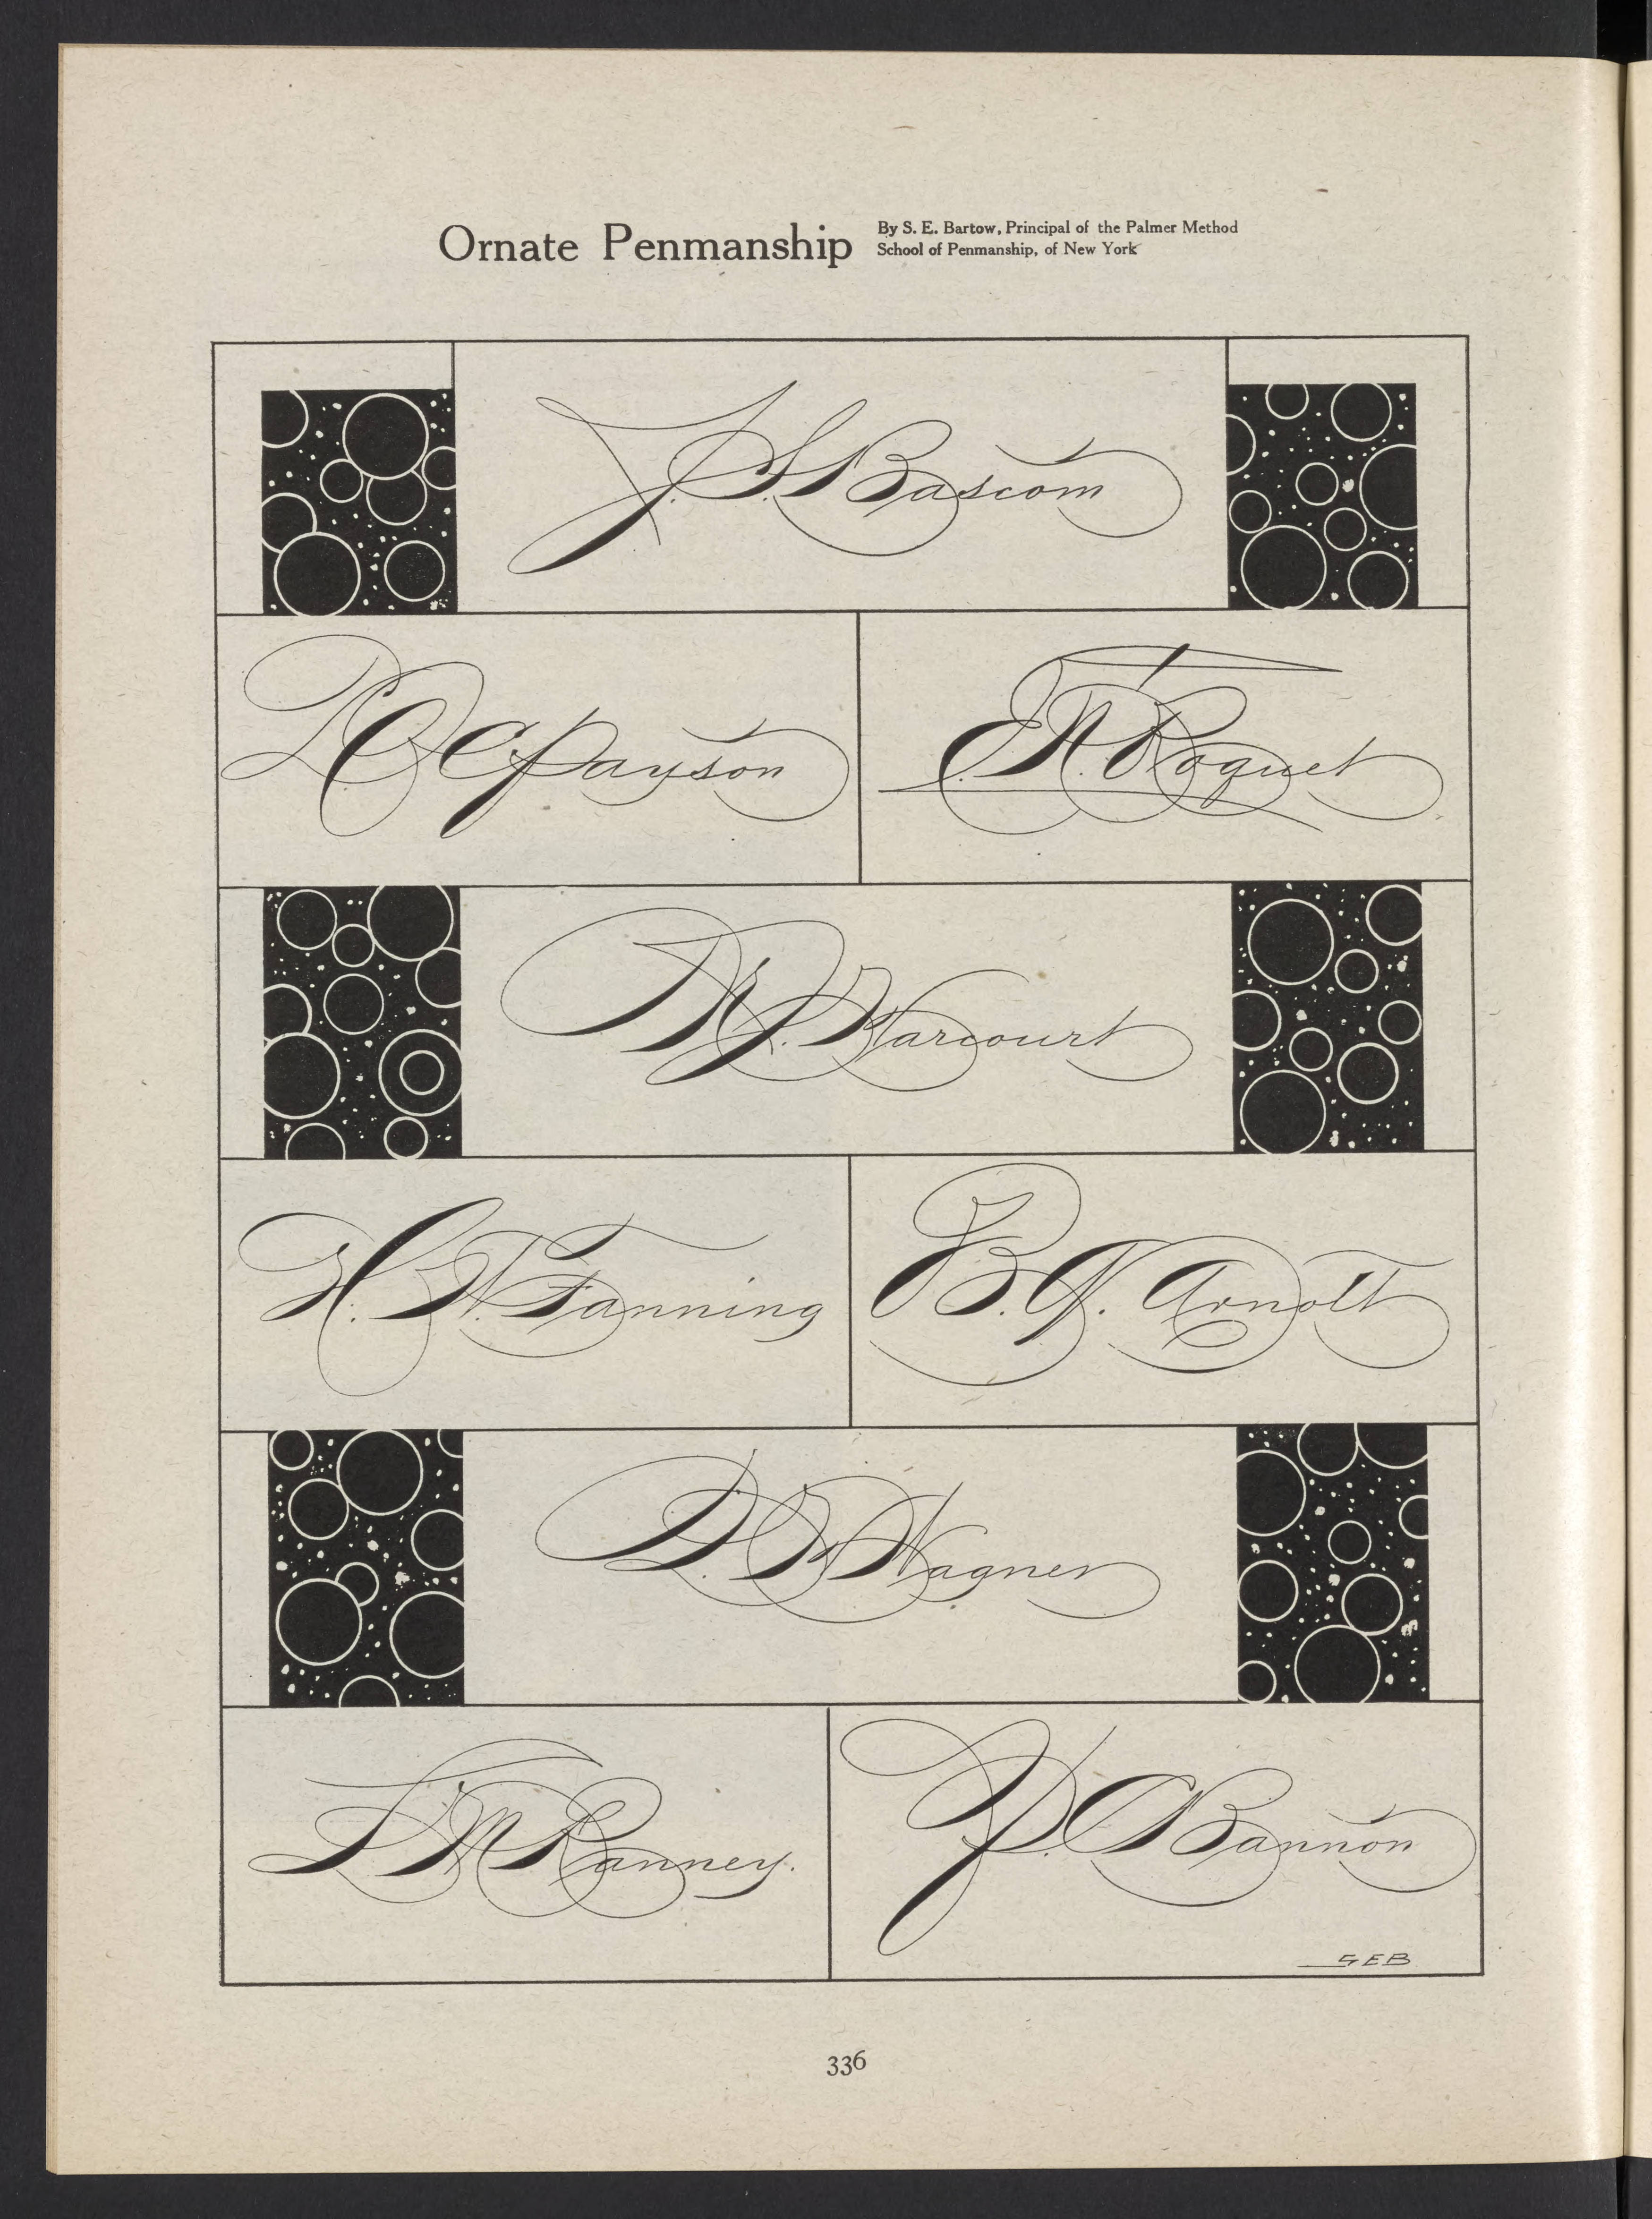 Ornate Penmanship
By S. E. Bartow, Principal of the Palmer Method
School of Penmanship, of New York
J. S. Bascom
Payson
Poquet
Harcourt
H. W. Fanning
B. G. Arnolt
Wagner
L M Ranney.
P. O Bannon
SEB
336